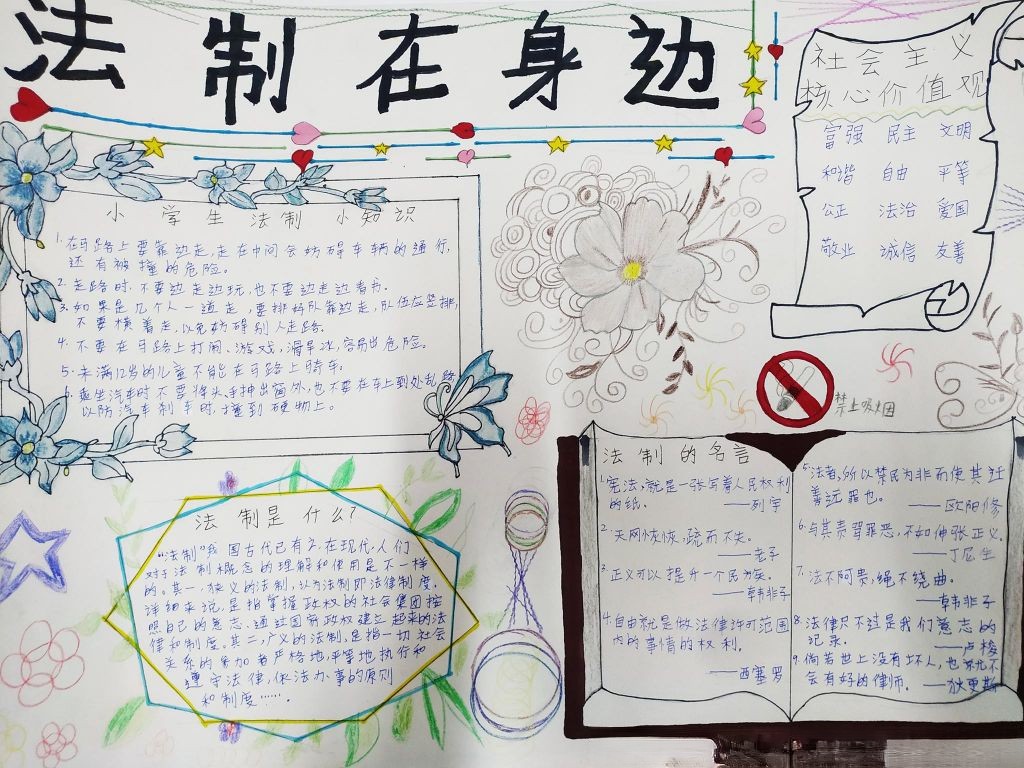 法制在身边
社会主义
核心价值观
富强 民主 文明
和谐 自由 平等
公正 法治 爱国
敬业 诚信 友善
小学生法制小知识
1.在马路上要靠边走,走在中间会妨碍车辆的通行,
还有被撞的危险。
2.走路时,不要边走边玩,也不要边走边看书。
3.如果是几个人一道走,要排好队靠边走,队伍应竖排,
不要横着走,以免妨碍别人走路。
4.不要在马路上打闹、游戏,滑旱冰,容易出危险。
5.未满12岁的儿童不能在马路上骑车。
6.乘坐汽车时不要将头、手抻出窗外,也不要在车上到处乱跑
以防汽车刹车时,撞到硬物上。
禁止吸烟
法制是什么?
“法制”我国古代已有之,在现代,人们
对于法制概念的理解和使用是不一样
的。其一,狭义的法制,认为法制即法律制度。
详细来说,是指掌握政权的社会集团按
照自己的意志、通过国家政权建立起来的法
律和制度。其二,广义的法制,是指一切社会
关系的参加者严格地,平等地执行和
遵守法律,依法办事的原则
和制度……
法制的名言
1.宪法,就是一张写着人民权利
的纸。——列宁
2.天网恢恢,疏而不失。
——老子
3.正义可以提升一个民族。
——韩非子
4.自由就是做法律许可范围
内的事情的权利。
——西塞罗
5.法者,所以禁民为非而使其迁
善远罪也。——欧阳修
6.与其责骂罪恶,不如伸张正义。
——丁尼生
7.法不阿贵,绳不绕曲。
——韩非子
8.法律只不过是我们意志的
记录。——卢梭
9.倘若世上没有坏人,也就不
会有好的律师。——狄更斯